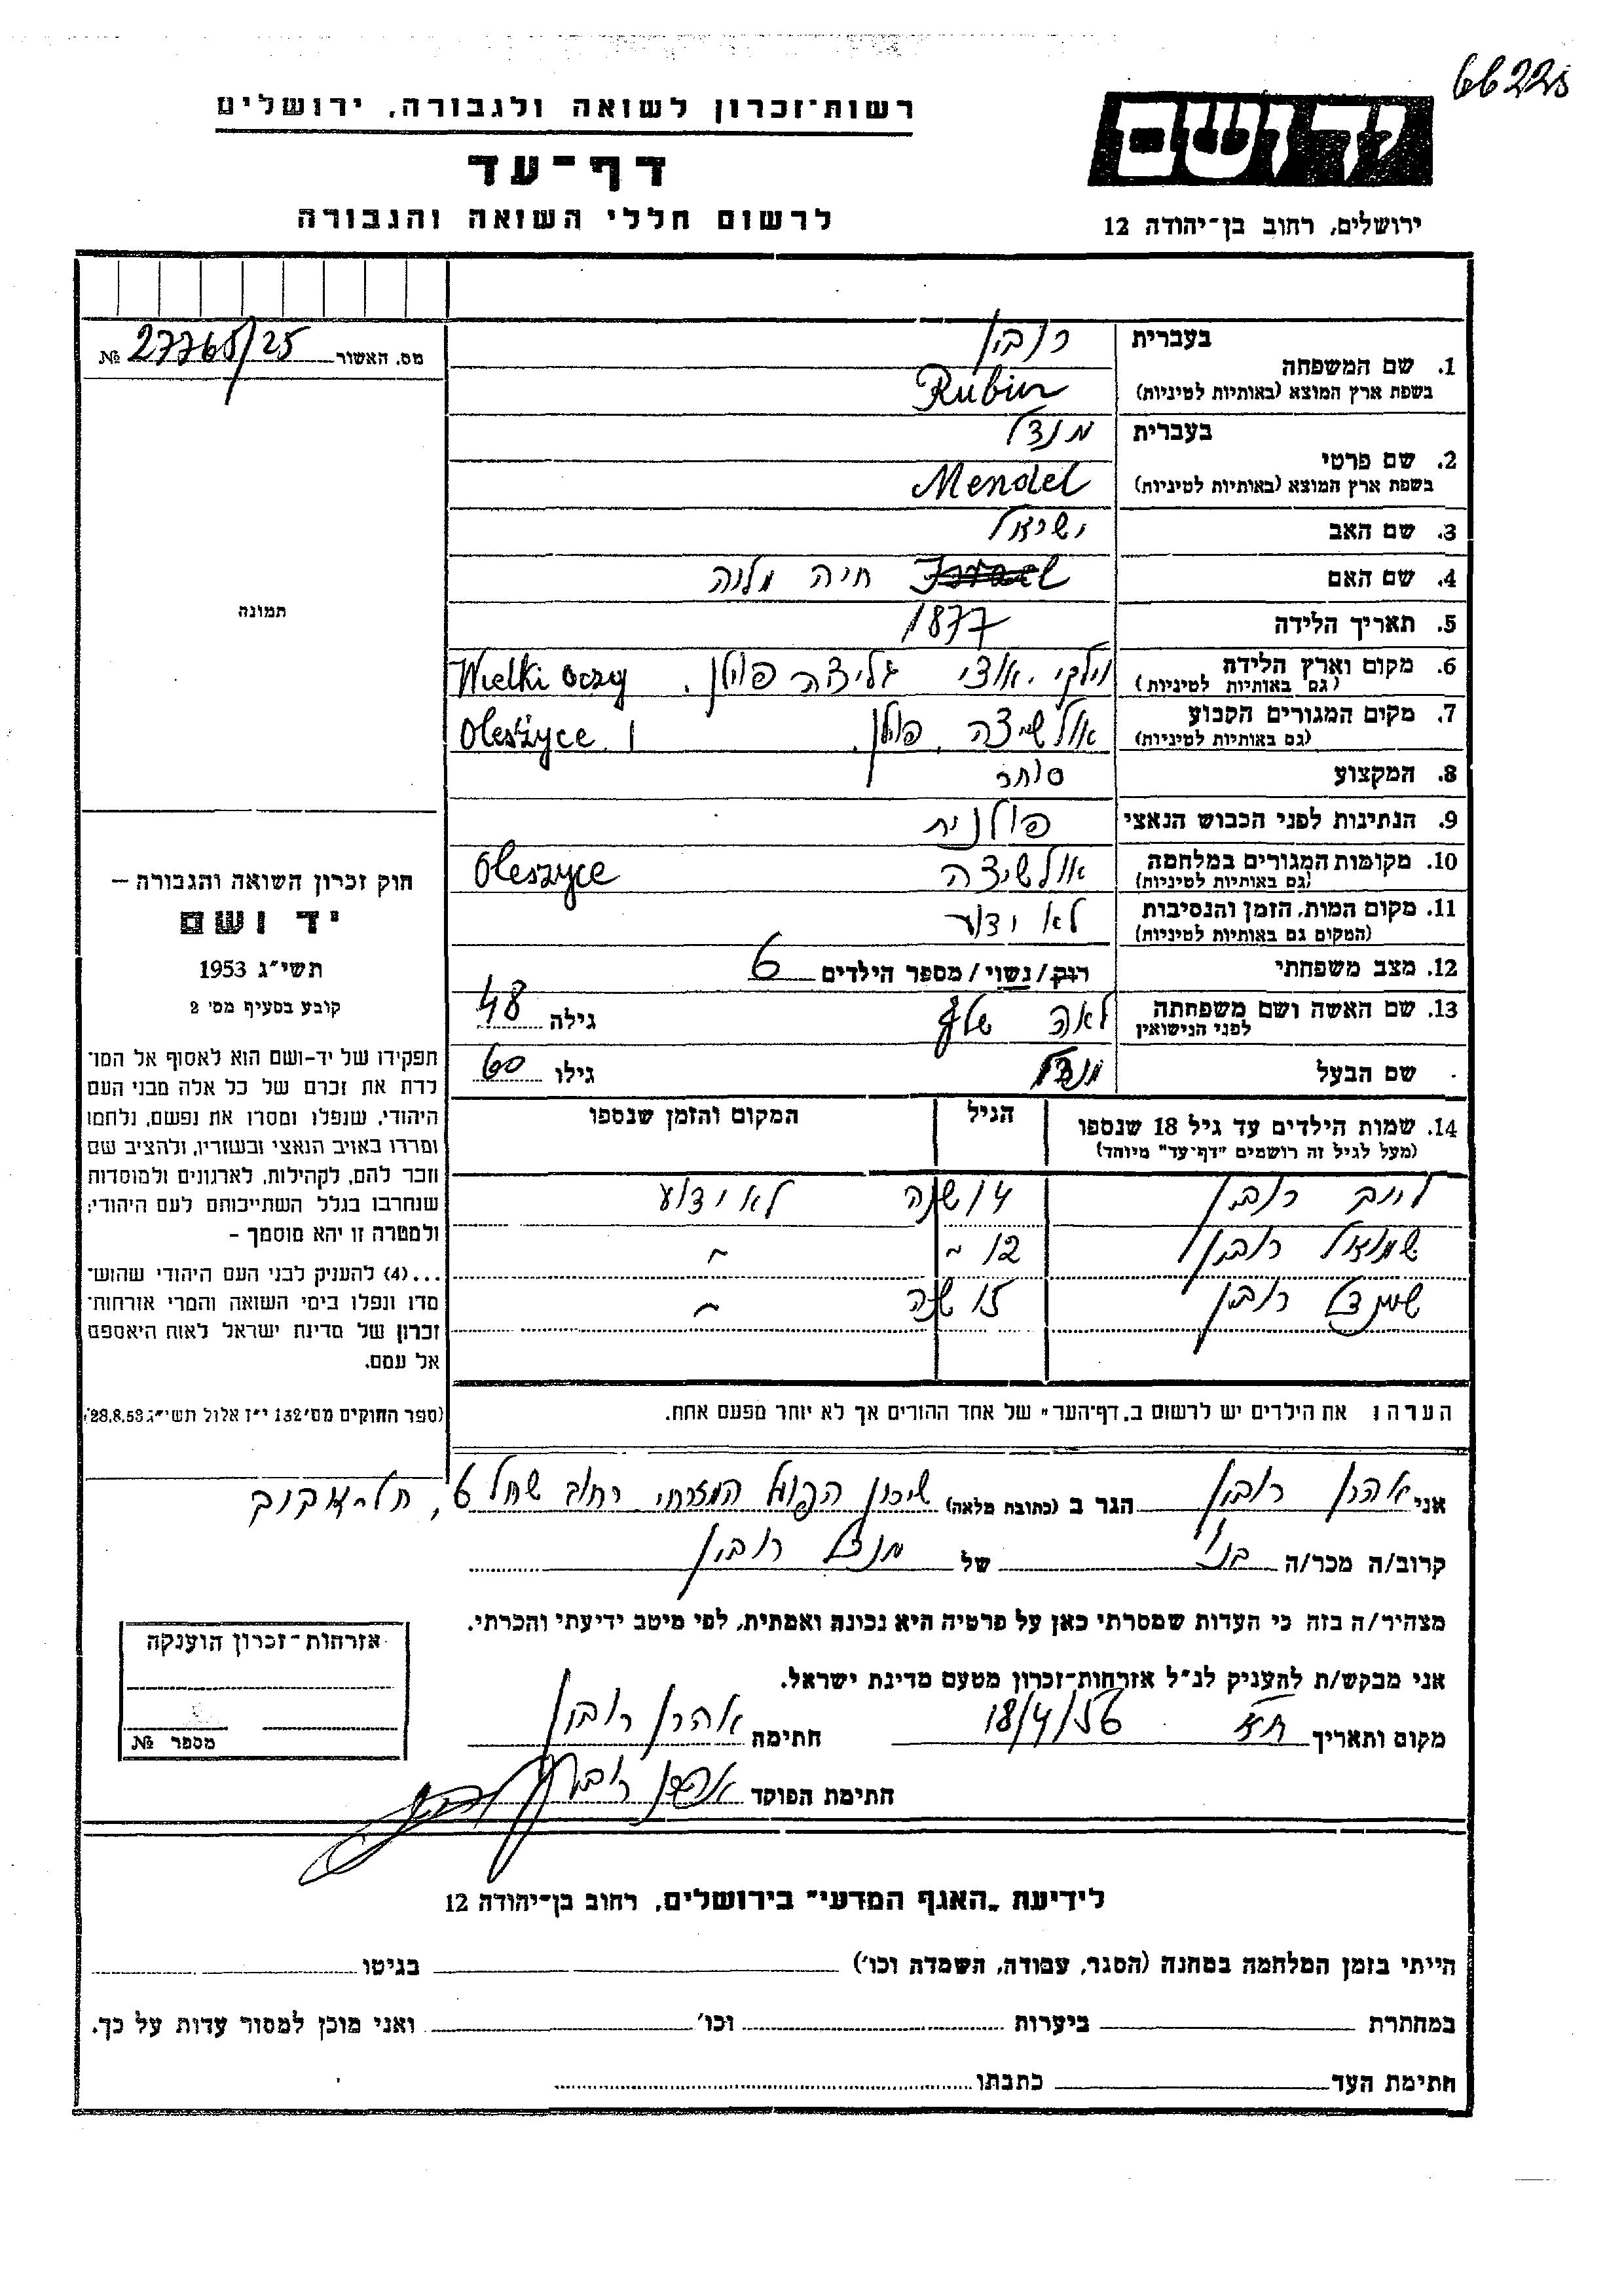 66225
רשות־זכרון לשואה ולגבורה, ירושלים
דף־עד
לרשום חללי השואה והגבורה
יד ושם
ירושלים, רחוב בן־יהודה 12
מס. האשור 27765/25 №
תמונה
חוק זכרון השואה והגבורה –
יד ושם
תשי״ג 1953
קובע בסעיף מס׳ 2
תפקידו של יד-ושם הוא לאסוף אל המו־
לדת את זכרם של כל אלה מבני העם
היהודי, שנפלו ומסרו את נפשם, נלחמו
ומרדו באויב הנאצי ובעוזריו, ולהציב שם
וזכר להם, לקהילות, לארגונים ולמוסדות
שנחרבו בגלל השתייכותם לעם היהודי;
ולמטרה זו יהא מוסמך –
...(4) להעניק לבני העם היהודי שהוש־
מדו ונפלו בימי השואה והמרי אזרחות־
זכרון של מדינת ישראל לאות היאספם
אל עמם.
(ספר החוקים מס׳ 132 י״ז אלול תשי״ג 28.8.53)
1. שם המשפחה בעברית רובין
בשפת ארץ המוצא (באותיות לטיניות) Rubin
2. שם פרטי בעברית מנדל
בשפת ארץ המוצא (באותיות לטיניות) Mendel
3. שם האב ישראל
4. שם האם חיה מלכה
5. תאריך הלידה 1877
6. מקום וארץ הלידה וילקי אוצי גליציה פולין. Wielki Oczy
(גם באותיות לטיניות)
7. מקום המגורים הקבוע אולשיצה, פולין. Oleszyce
(גם באותיות לטיניות)
8. המקצוע סוחר
9. הנתינות לפני הכבוש הנאצי פולנית
10. מקומות המגורים במלחמה אולשיצה Oleszyce
(גם באותיות לטיניות)
11. מקום המות, הזמן והנסיבות לא ידוע
(המקום גם באותיות לטיניות)
12. מצב משפחתי רוק/נשוי/מספר הילדים 6
13. שם האשה ושם משפחתה לאה גילה 48
לפני הנישואין
שם הבעל מנדל גילו 60
14. שמות הילדים עד גיל 18 שנספו הגיל המקום והזמן שנספו
(מעל לגיל זה רושמים "דף־עד" מיוחד)
רובין 14 שנה לא ידוע
שמואל רובין 12 ״ ״
רובין 15 שנה ״
הערה: את הילדים יש לרשום ב„דף־העד״ של אחד ההורים אך לא יותר מפעם אחת.
אני אהרן רובין הגר ב (כתובת מלאה) שיכון הפועל המזרחי רחוב שחל 6,
קרוב/ה מכר/ה בנו של מנדל רובין
מצהיר/ה בזה כי העדות שמסרתי כאן על פרטיה היא נכונה ואמתית, לפי מיטב ידיעתי והכרתי.
אני מבקש/ת להעניק לנ״ל אזרחות־זכרון מטעם מדינת ישראל.
מקום ותאריך 18/4/56 חתימה אהרן רובין
חתימת הפוקד אהרן רובין
אזרחות־זכרון הוענקה
מספר №
לידיעת „האגף המדעי״ בירושלים, רחוב בן־יהודה 12
הייתי בזמן המלחמה במחנה (הסגר, עבודה, השמדה וכו׳) בגיטו
במחתרת ביערות וכו׳ ואני מוכן למסור עדות על כך.
חתימת העד כתבתו